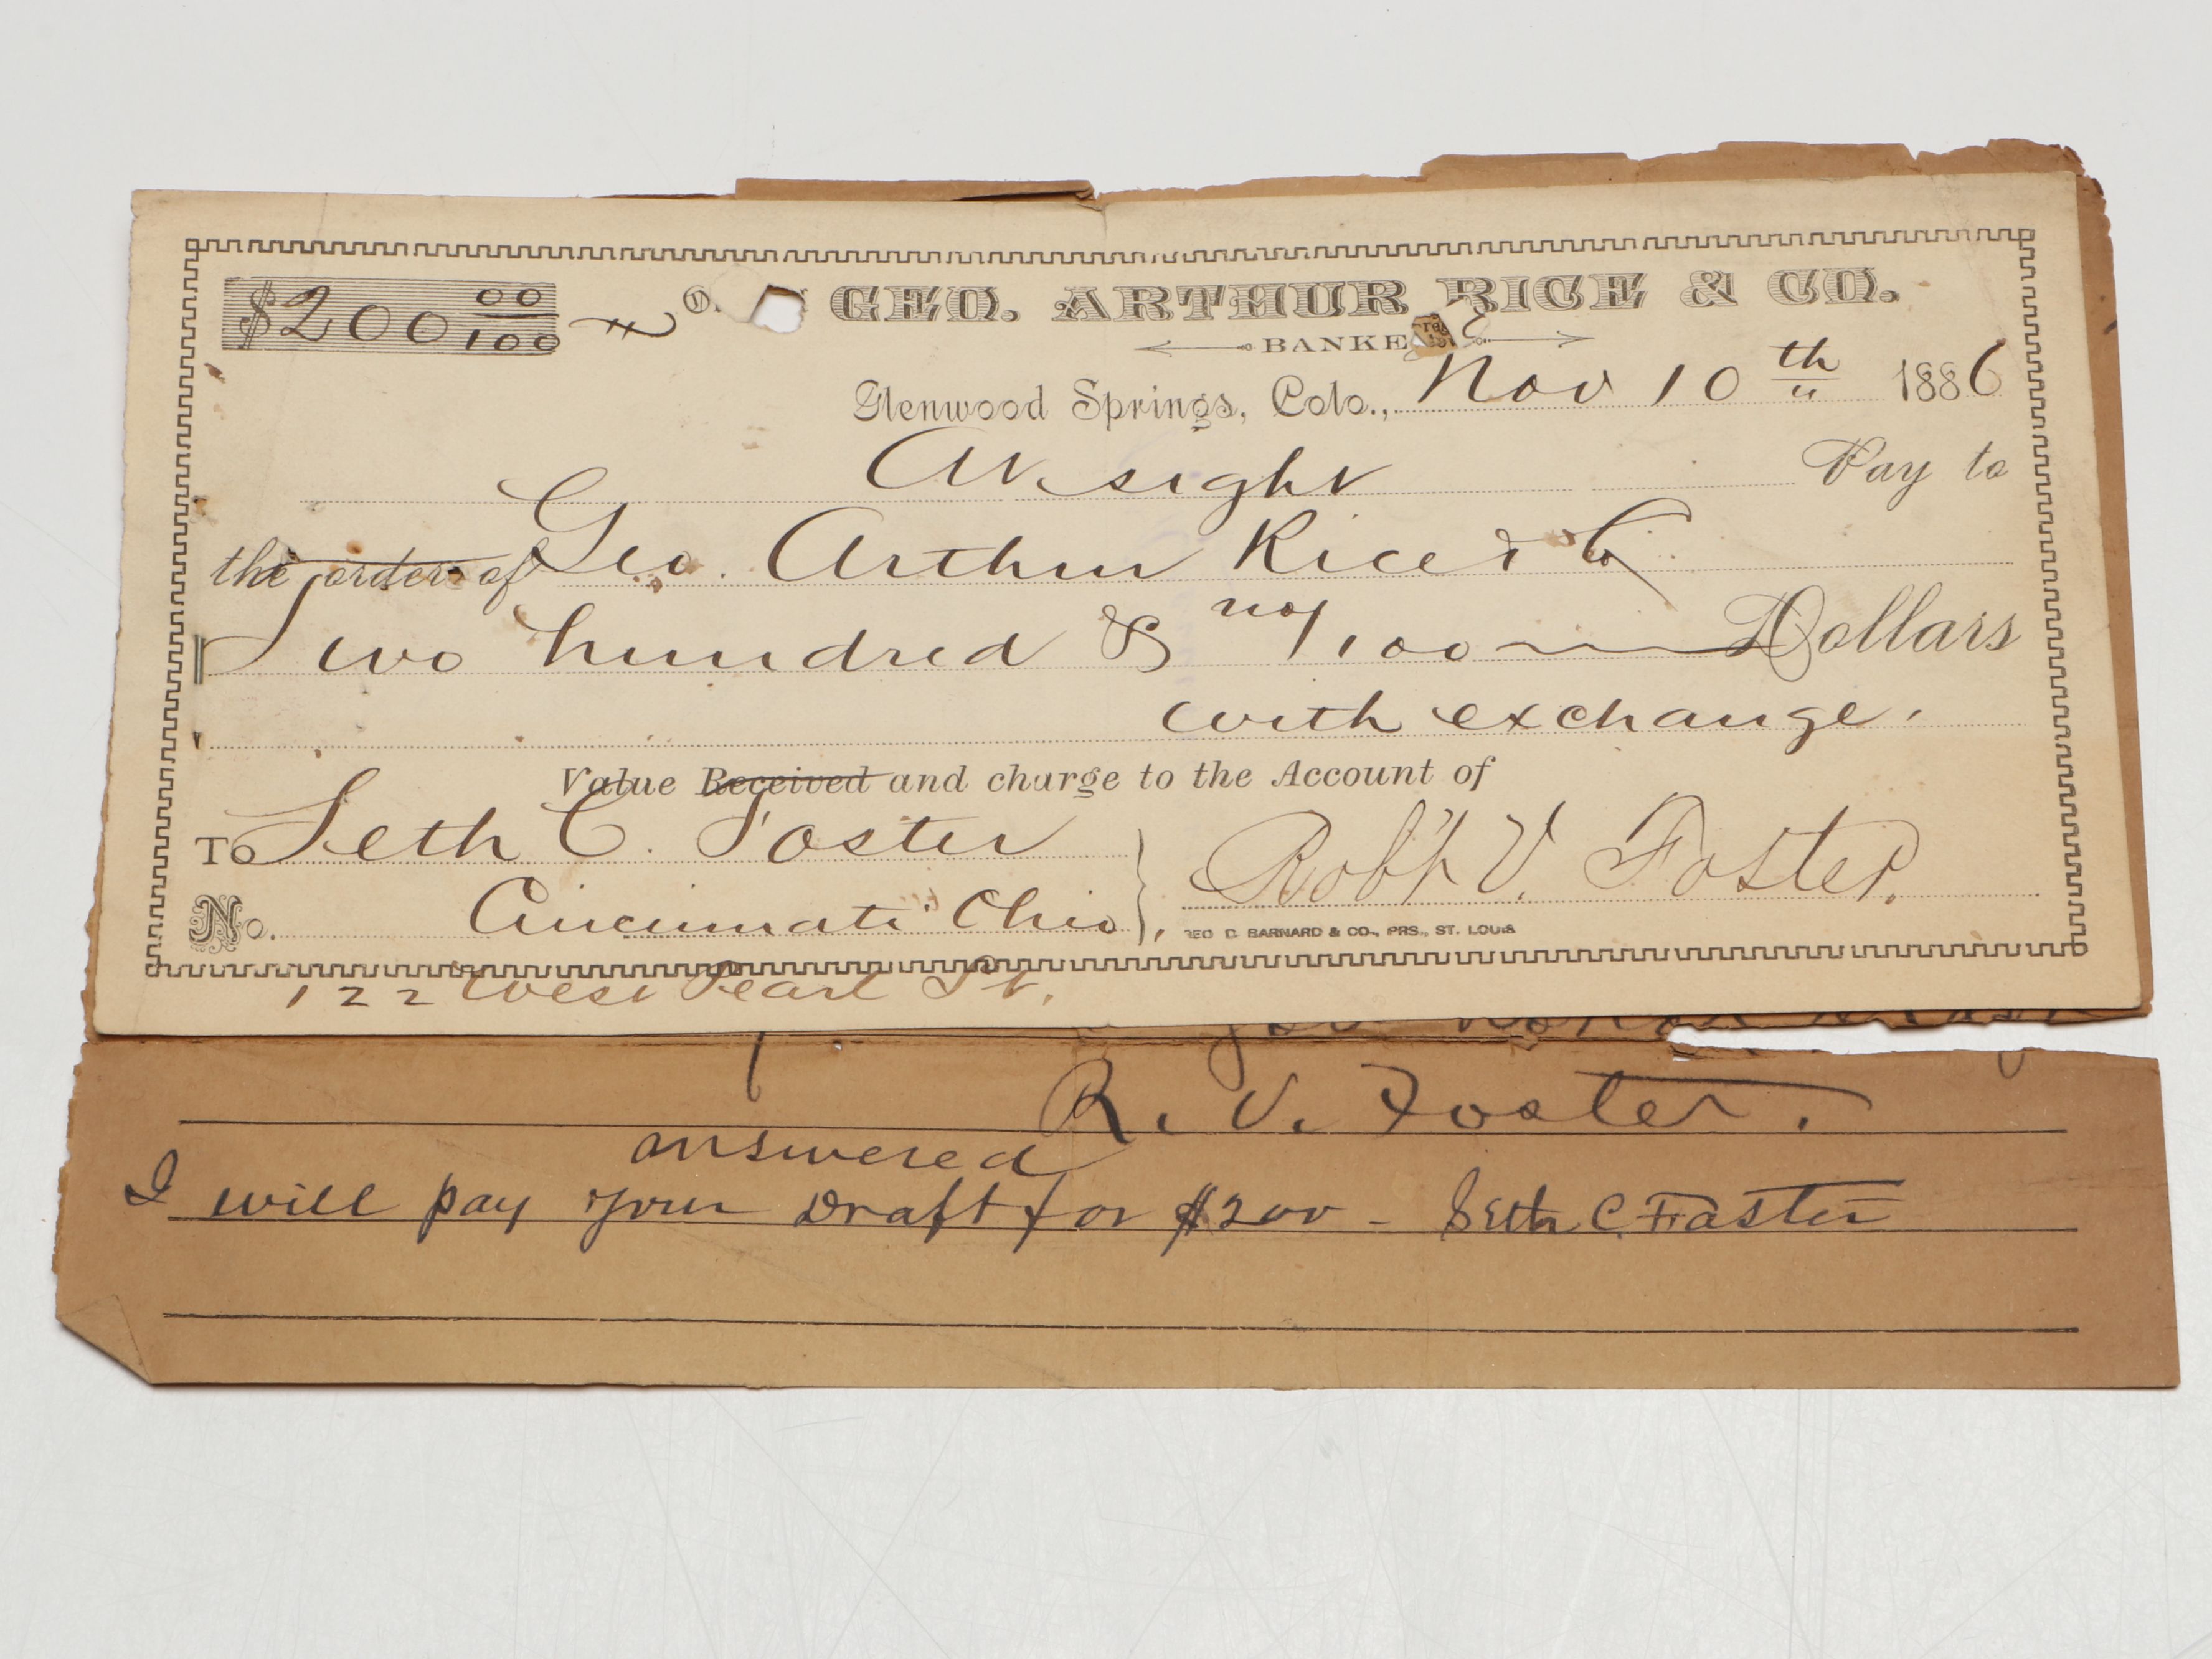 $200 00/100
GEO. ARTHUR RICE & CO.
BANKE
Glenwood Springs, Colo., Nov 10th 1886
At sight Pay to
the order of Geo. Arthur Rice & Co
Two hundred & no/100 Dollars
with exchange.
Value Received and charge to the Account of
To Seth C. Foster
Robt V. Foster.
No. Cincinnati Ohio
GEO D. BARNARD & CO., PRS., ST. LOUIS
122 West Pearl St.
R. V. Foster.
answered
I will pay your Draft for $200 - Seth C. Foster